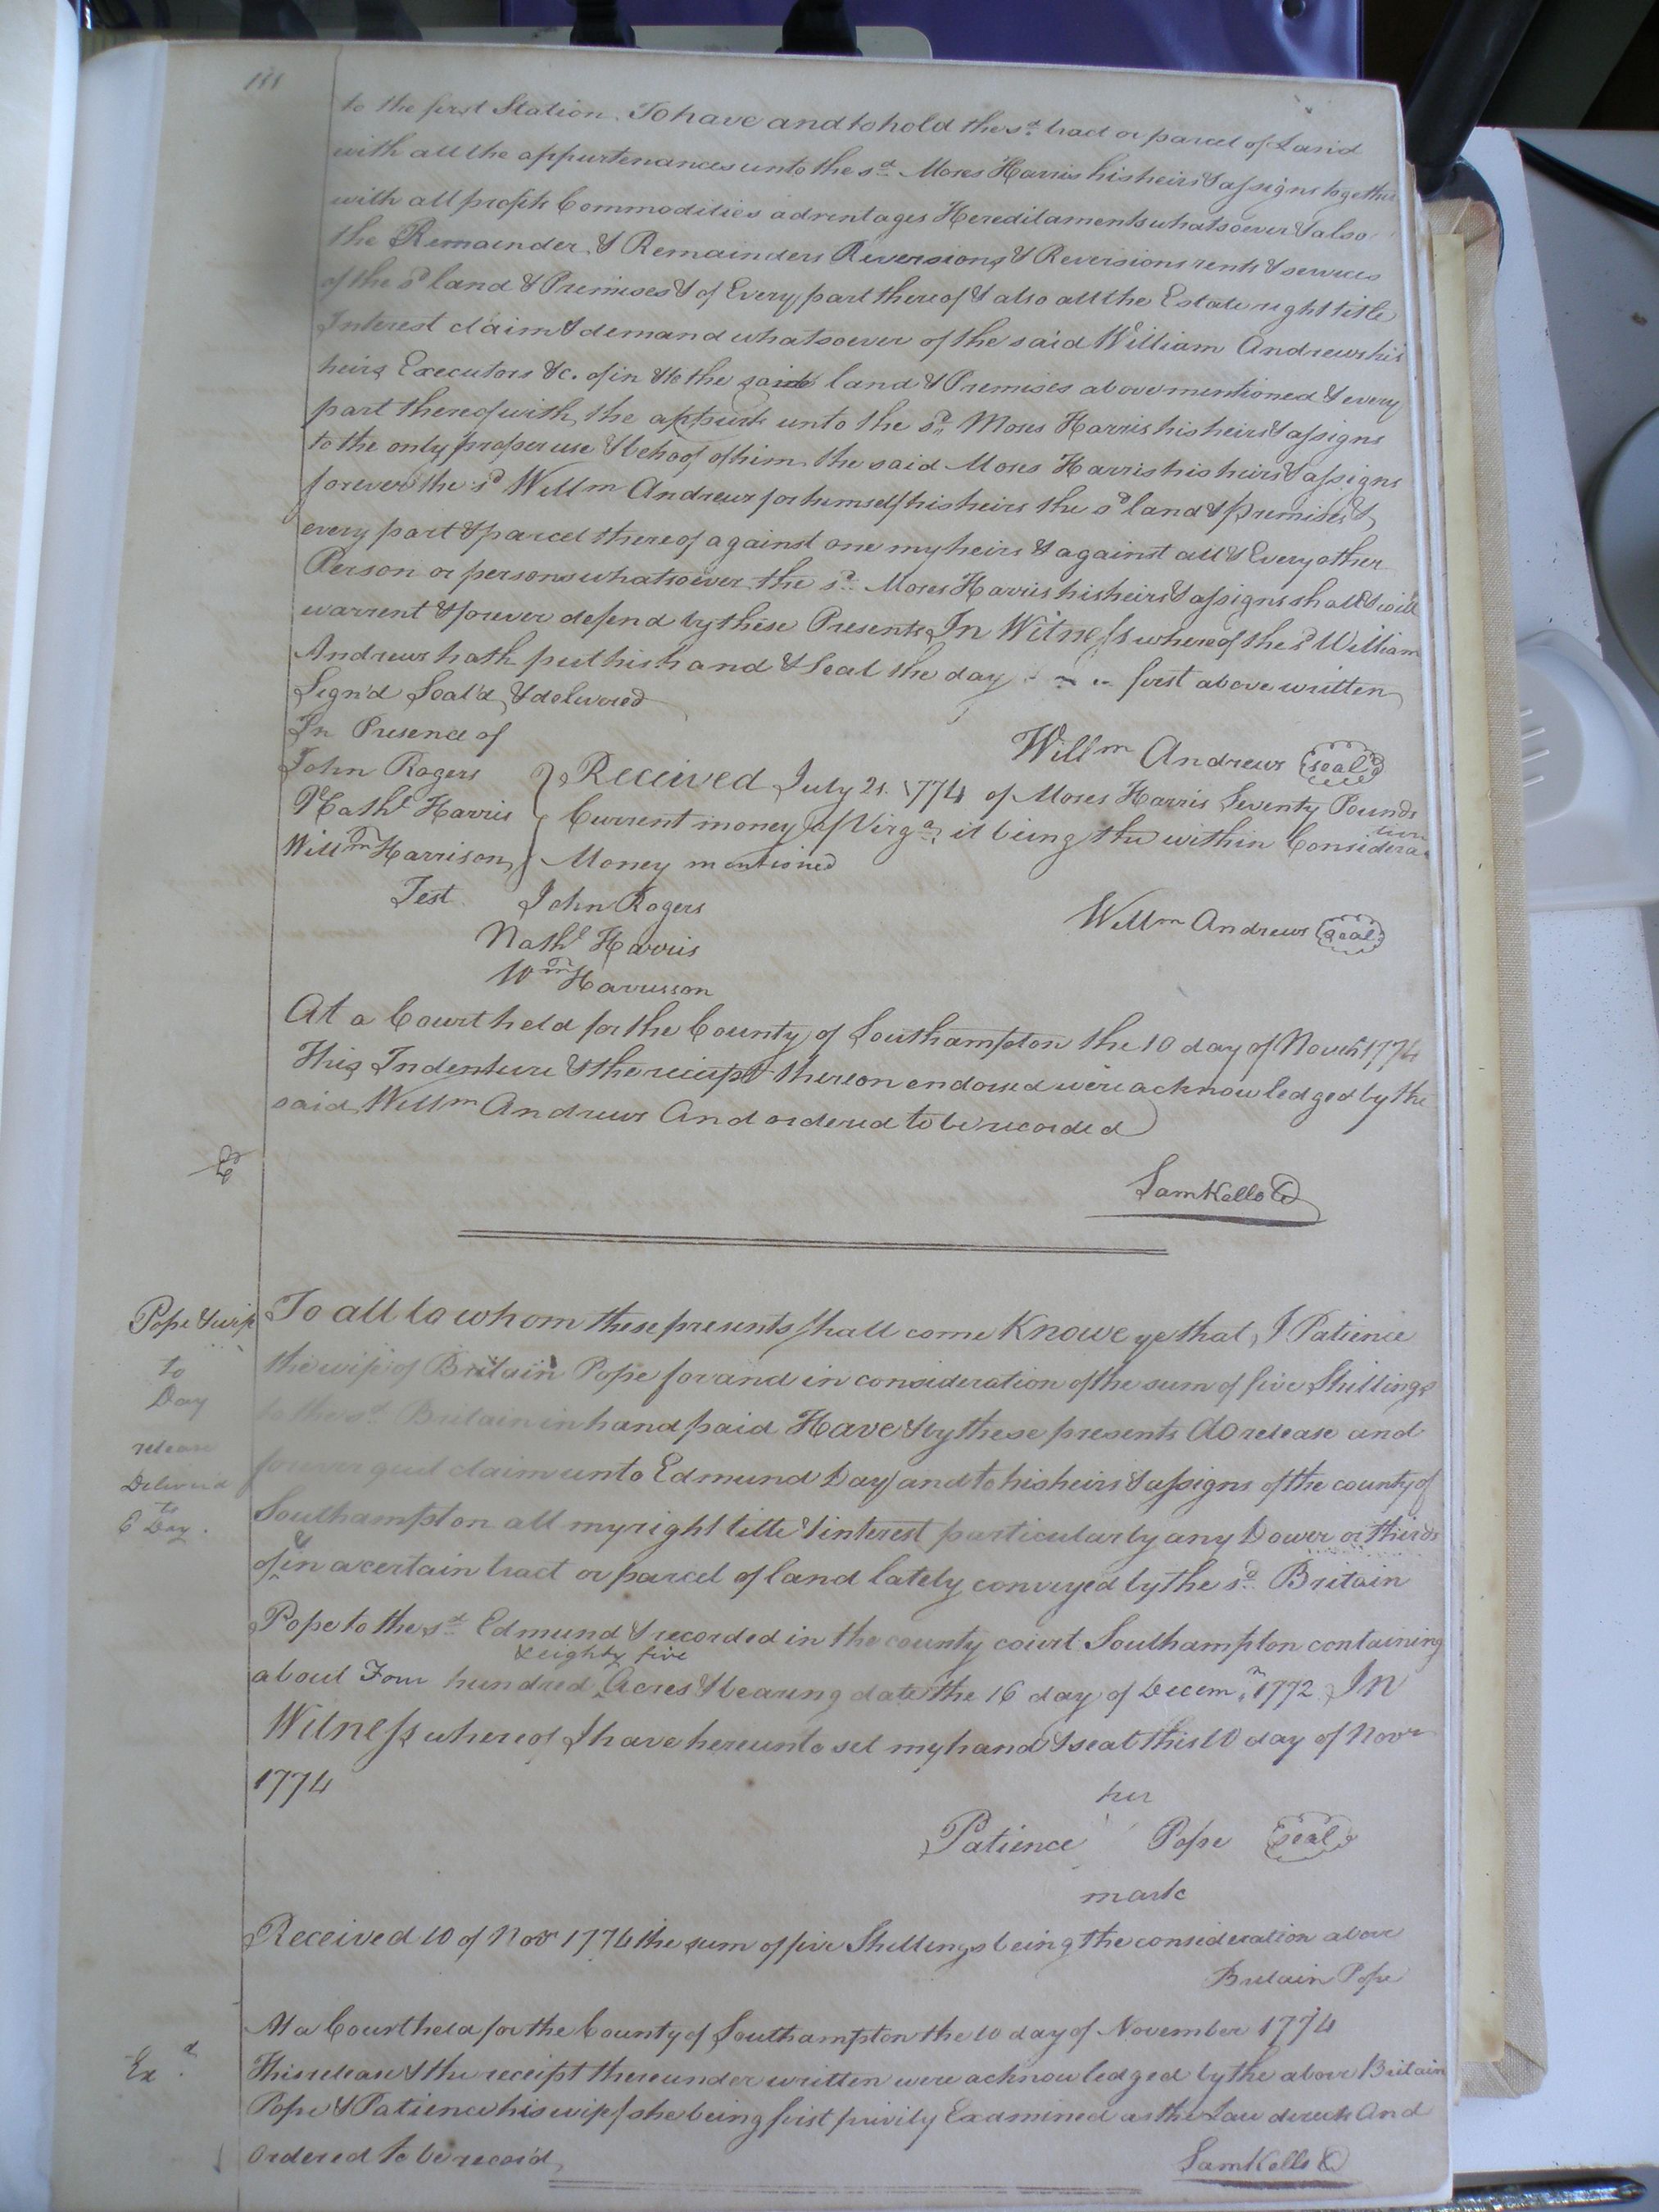 to the first Station. To have and to hold the sd. tract or parcel of Land
with all the appurtenances unto the sd. Moses Harris his heirs & assigns together
with all profits Commodities advantages Hereditaments whatsoever & also
the Remainder & Remainders Reversions & Reversions rents & services
of the sd land & Premises & of Every part thereof & also all the Estate right title
Interest claim & demand whatsoever of the said William Andrews his
heirs Executors &c. of in & to the said land & Premises above mentioned & every
part thereof with the appurts unto the sd. Moses Harris his heirs & assigns
to the only proper use & behoof of him the said Moses Harris his heirs & assigns
forever & the sd Willm Andrews for himself his heirs the sd land & premises &
every part & parcel thereof against one my heirs & against all & Every other
Person or persons whatsoever the sd. Moses Harris his heirs & assigns shall & will
warrent & forever defend by these Presents In Witness whereof the sd William
Andrews hath put his hand & Seal the day first above written
Sign'd Seal'd & delivered
In Presence of
Willm Andrews seal
John Rogers
Nathl Harris
Willm Harrison
Received July 21. 1774 of Moses Harris Seventy Pounds
Current money of Virga. it being the within Consideration
Money mentioned
Test. John Rogers
Willm Andrews seal
Nathl Harris
Wm Harrisson
At a Court held for the County of Southampton the 10 day of Novem 1774
This Indenture & the reciept thereon endorsed were acknowledged by the
said Willm Andrews And ordered to be recorded
Sam Kello C
Pope & wife
to
Day
release
Deliver'd
to
E Day.
To all to whom these presents shall come Knowe ye that, I Patience
the wife of Britain Pope for and in consideration of the sum of five Shillings
to the sd. Britain in hand paid Have & by these presents do release and
forever quit claim unto Edmund Day and to his heirs & assigns of the county of
Southampton all my right title & interest particularly any Dower or thirds
of & in a certain tract or parcel of land lately conveyed by the sd. Britain
Pope to the sd. Edmund & recorded in the county court Southampton containing
& eighty five
about Four hundred Acres & bearing date the 16 day of Decemr. 1772 In
Witness whereof I have hereunto set my hand & seal this 10 day of Novr
1774
her
Patience Pope seal
mark
Received 10 of Novr 1774 the sum of five Shillings being the consideration above
Britain Pope
At a Court held for the County of Southampton the 10 day of November 1774
Exd.
This release & the receipt thereunder written were acknowledged by the above Britain
Pope & Patience his wife she being first privily Examined as the Law directs And
Ordered to be record,
Sam Kello C